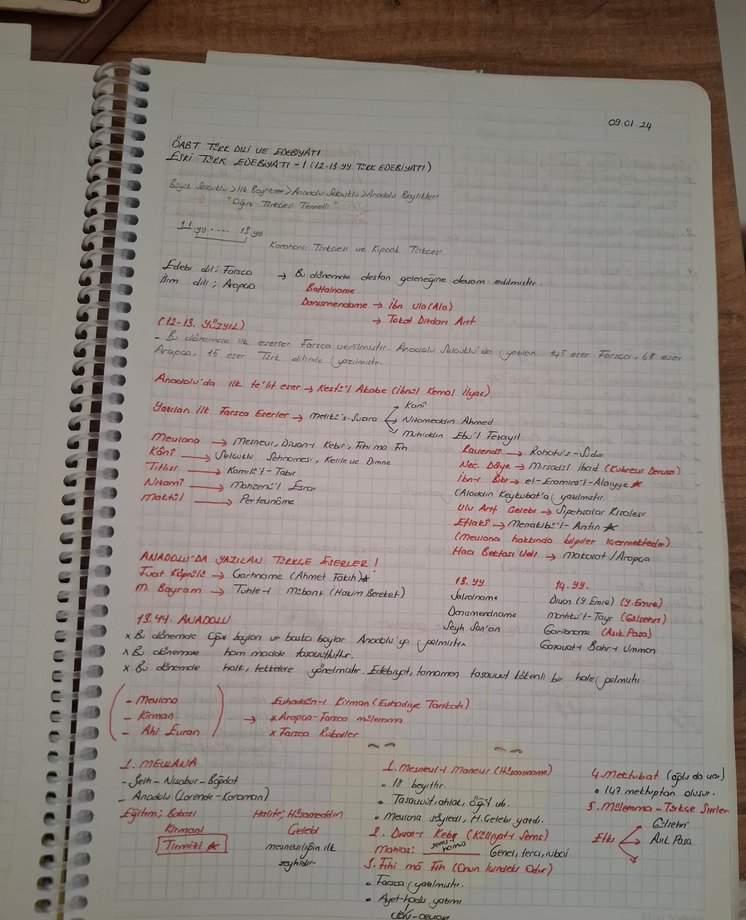 09.01.24
ÖABT TÜRK DİLİ VE EDEBİYATI
ESKİ TÜRK EDEBİYATI - 1 (12-13.yy. TÜRK EDEBİYATI)
Büyük Selçuklu > İlk Beylikler > Anadolu Selçuklu > Anadolu Beylikleri
"Oğuz Türkçesi Temelli"
11.yy ---- 13.yy
Karahanlı Türkçesi ve Kıpçak Türkçesi.
Edebi dili; Farsça → Bu dönemde destan geleneğine devam edilmiştir.
İlim dili; Arapça Battalname
Danişmendname → İbn Ula (Ala)
→ Tokat Dizdarı Arif
(12-13. YÜZYIL)
- Bu dönemde ilk eserler Farsça verilmiştir. Anadolu Selçuklu'da yazılan 145 eser Farsça, 68 eser
Arapça, 15 eser Türk dilinde yazılmıştır.
Anadolu'da ilk te'lif eser → Keşfü'l Akabe (İbnül Kemal İlyas)
Yazılan İlk Farsça Eserler → Melikü's-Şuara
Kani
Nizameddin Ahmed
Muhiddin Ebu'l Fezayil
Mevlana → Mesnevi, Divan-ı Kebir, Fihi ma Fih
Kâni → Selçuklu Şehnamesi, Kelile ve Dimne
Tiflisi → Kamilü'l-Tabir
Nizami → Mahzenü'l Esrar
Maktûl → Pertevnâme
Ravendi → Rahatü's-Sudur
Nec. Dâye → Mirsadül İbad (Kubrevi Dervişi)
İbn-i Bibi → el-Evamirü'l-Alaiyye ★
(Aladdin Keykubat'a) yazılmıştır.
Ulu Arif Çelebi → Sipehsalar Risalesi
Eflaki → Menakıbü'l-Arifin ★
(Mevlana hakkında bilgiler vermektedir)
Hacı Bektaşı Veli → Makalat / Arapça
ANADOLU'DA YAZILAN TÜRKÇE ESERLER!
Fuat Köprülü → Çarhname (Ahmet Fakih) ★
M. Bayram → Tuhfe-i Mübarizi (Hakim Bereket)
13.yy
Salsalname
Danişmendname
Şeyh San'an
14.yy.
Divan (Y.Emre) (Y.Emre)
Mantıku't-Tayr (Gülşehri)
Garibname (Aşık Paşa)
Gazavat-ı Bahr-ı Umman
13.44. ANADOLU
x Bu dönemde Oğuz boyları ve başka boylar Anadolu'ya gelmiştir.
x Bu dönemde ham madde tasavvuftur.
x Bu dönemde halk, tekkelere yönelmiştir. Edebiyat, tamamen tasavvuf kökenli bir hale gelmiştir.
- Mevlana
- Kirman
- Ahi Evran
→ Evhadüddin-i Kirman (Evhadiye Tarikatı)
x Arapça-Farsça mülemma
x Farsça Rubailer
1. MEVLANA
- Belh - Nişabur - Bağdat
- Anadolu (Larende-Karaman)
Eğitim; Babası
Kirmani
Tirmizi ★
Halife; Hüsameddin
Çelebi
mesneviliğin ilk
şeyhidir.
1. Mesnevi-i Manevi (Hüsamname)
• 18 beyittir.
• Tasavvuf, ahlak, öğüt vb.
• Mevlana söyledi, H. Çelebi yazdı.
2. Divan-ı Kebir (Külliyat-ı Şems)
Mahlas: Gazel, terci, rubai
3. Fihi mâ Fih (Onun İçindeki Odur)
• Farsça yazılmıştır.
• Ayet-hadis yatımı
soru-cevap
4. Mektubat (oğlu da var)
• 147 mektuptan oluşur.
5. Mülemma - Türkçe Şiirler
Etki
Gülşehri
Aşık Paşa